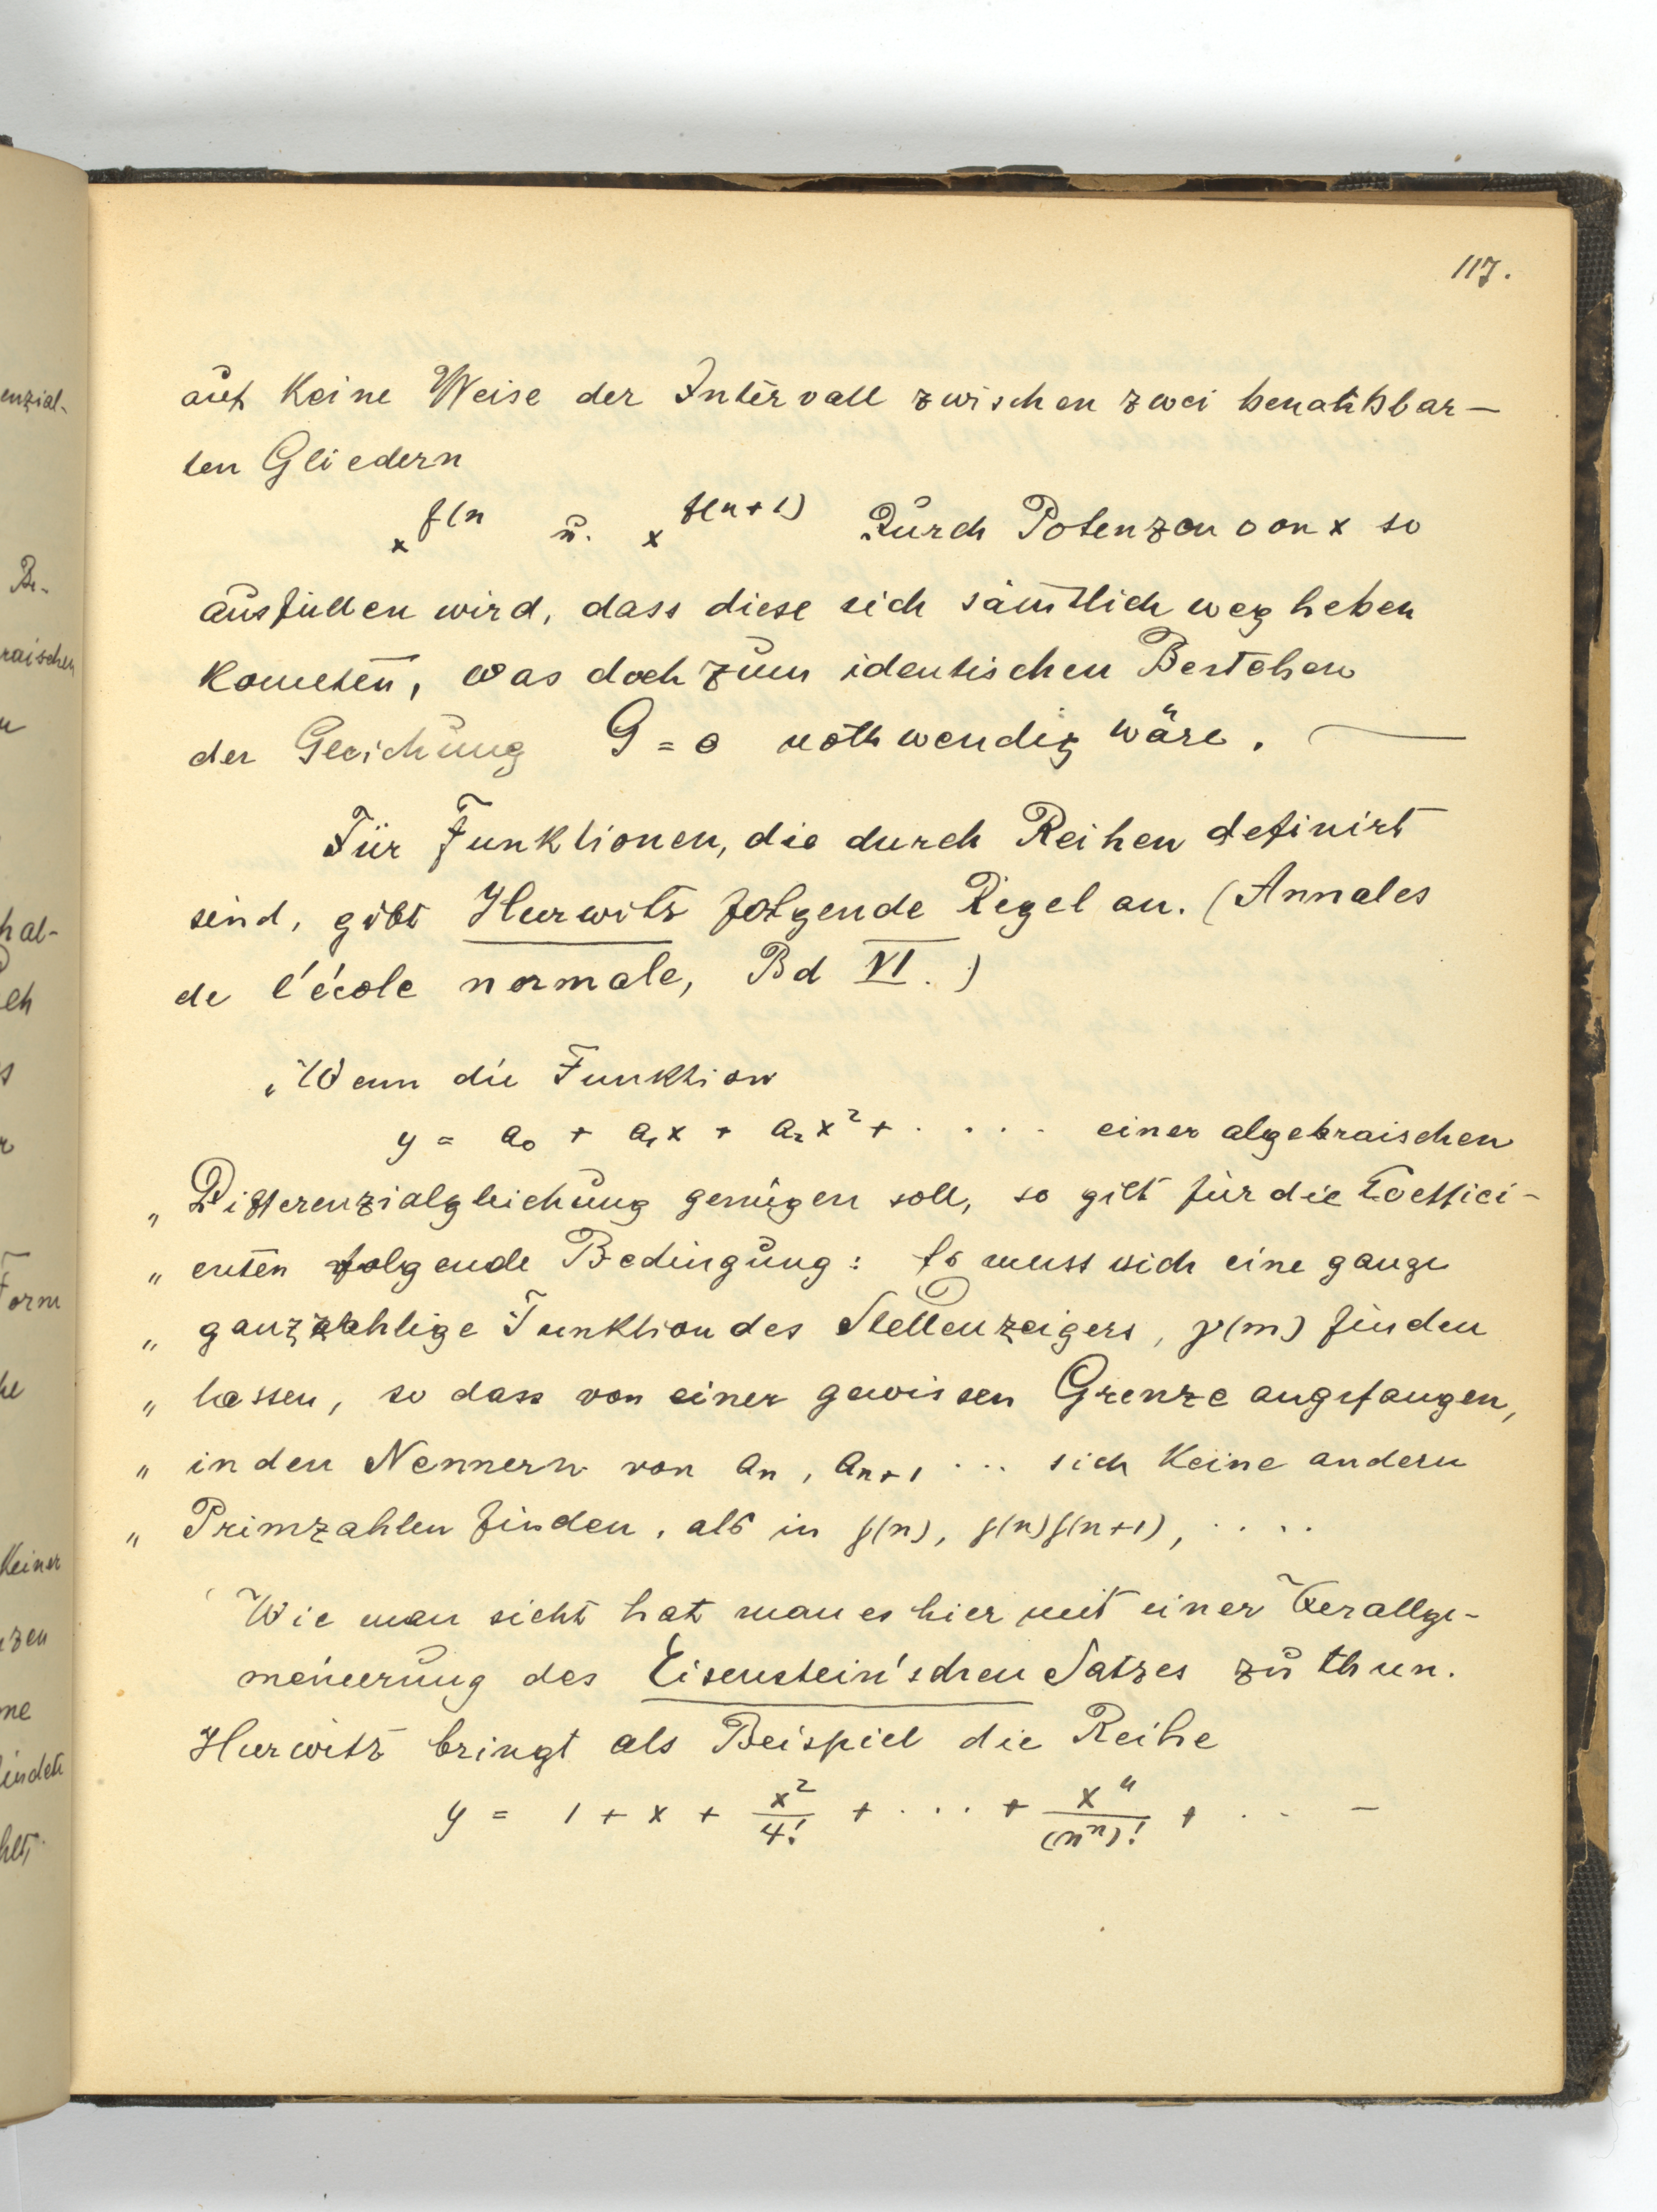 117.
auf keine Weise der Intervall zwischen zwei benachbar-
ten Gliedern
x^f(n u. x^f(n+1) durch Potenzen von x so
ausfüllen wird, dass diese sich sämtlich weg heben
könnten, was doch zum identischen Bestehen
der Gleichung G = 0 nothwendig wäre. —
Für Funktionen, die durch Reihen definirt
sind, gibt Hurwitz folgende Regel an. (Annales
de l'école normale, Bd VI.)
„Wenn die Funktion
y = a₀ + a₁x + a₂x² + . . . . einer algebraischen
„ Differenzialgleichung genügen soll, so gilt für die Coeffici-
„ enten folgende Bedingung: Es muss sich eine ganze
„ ganzzahlige Funktion des Stellenzeigers, f(m) finden
„ lassen, so dass von einer gewissen Grenze angefangen,
„ in den Nennern von aₙ, aₙ₊₁ ... sich keine andern
„ Primzahlen finden, als in f(n), f(n)f(n+1), ....
Wie man sieht hat man es hier mit einer Verallge-
meinerung des Eisenstein'schen Satzes zu thun.
Hurwitz bringt als Beispiel die Reihe
y = 1 + x + x²/4! + .... + xⁿ/(nⁿ)! + .. —
enzial-
Be-
raischen
hal-
Form
keiner
nzen